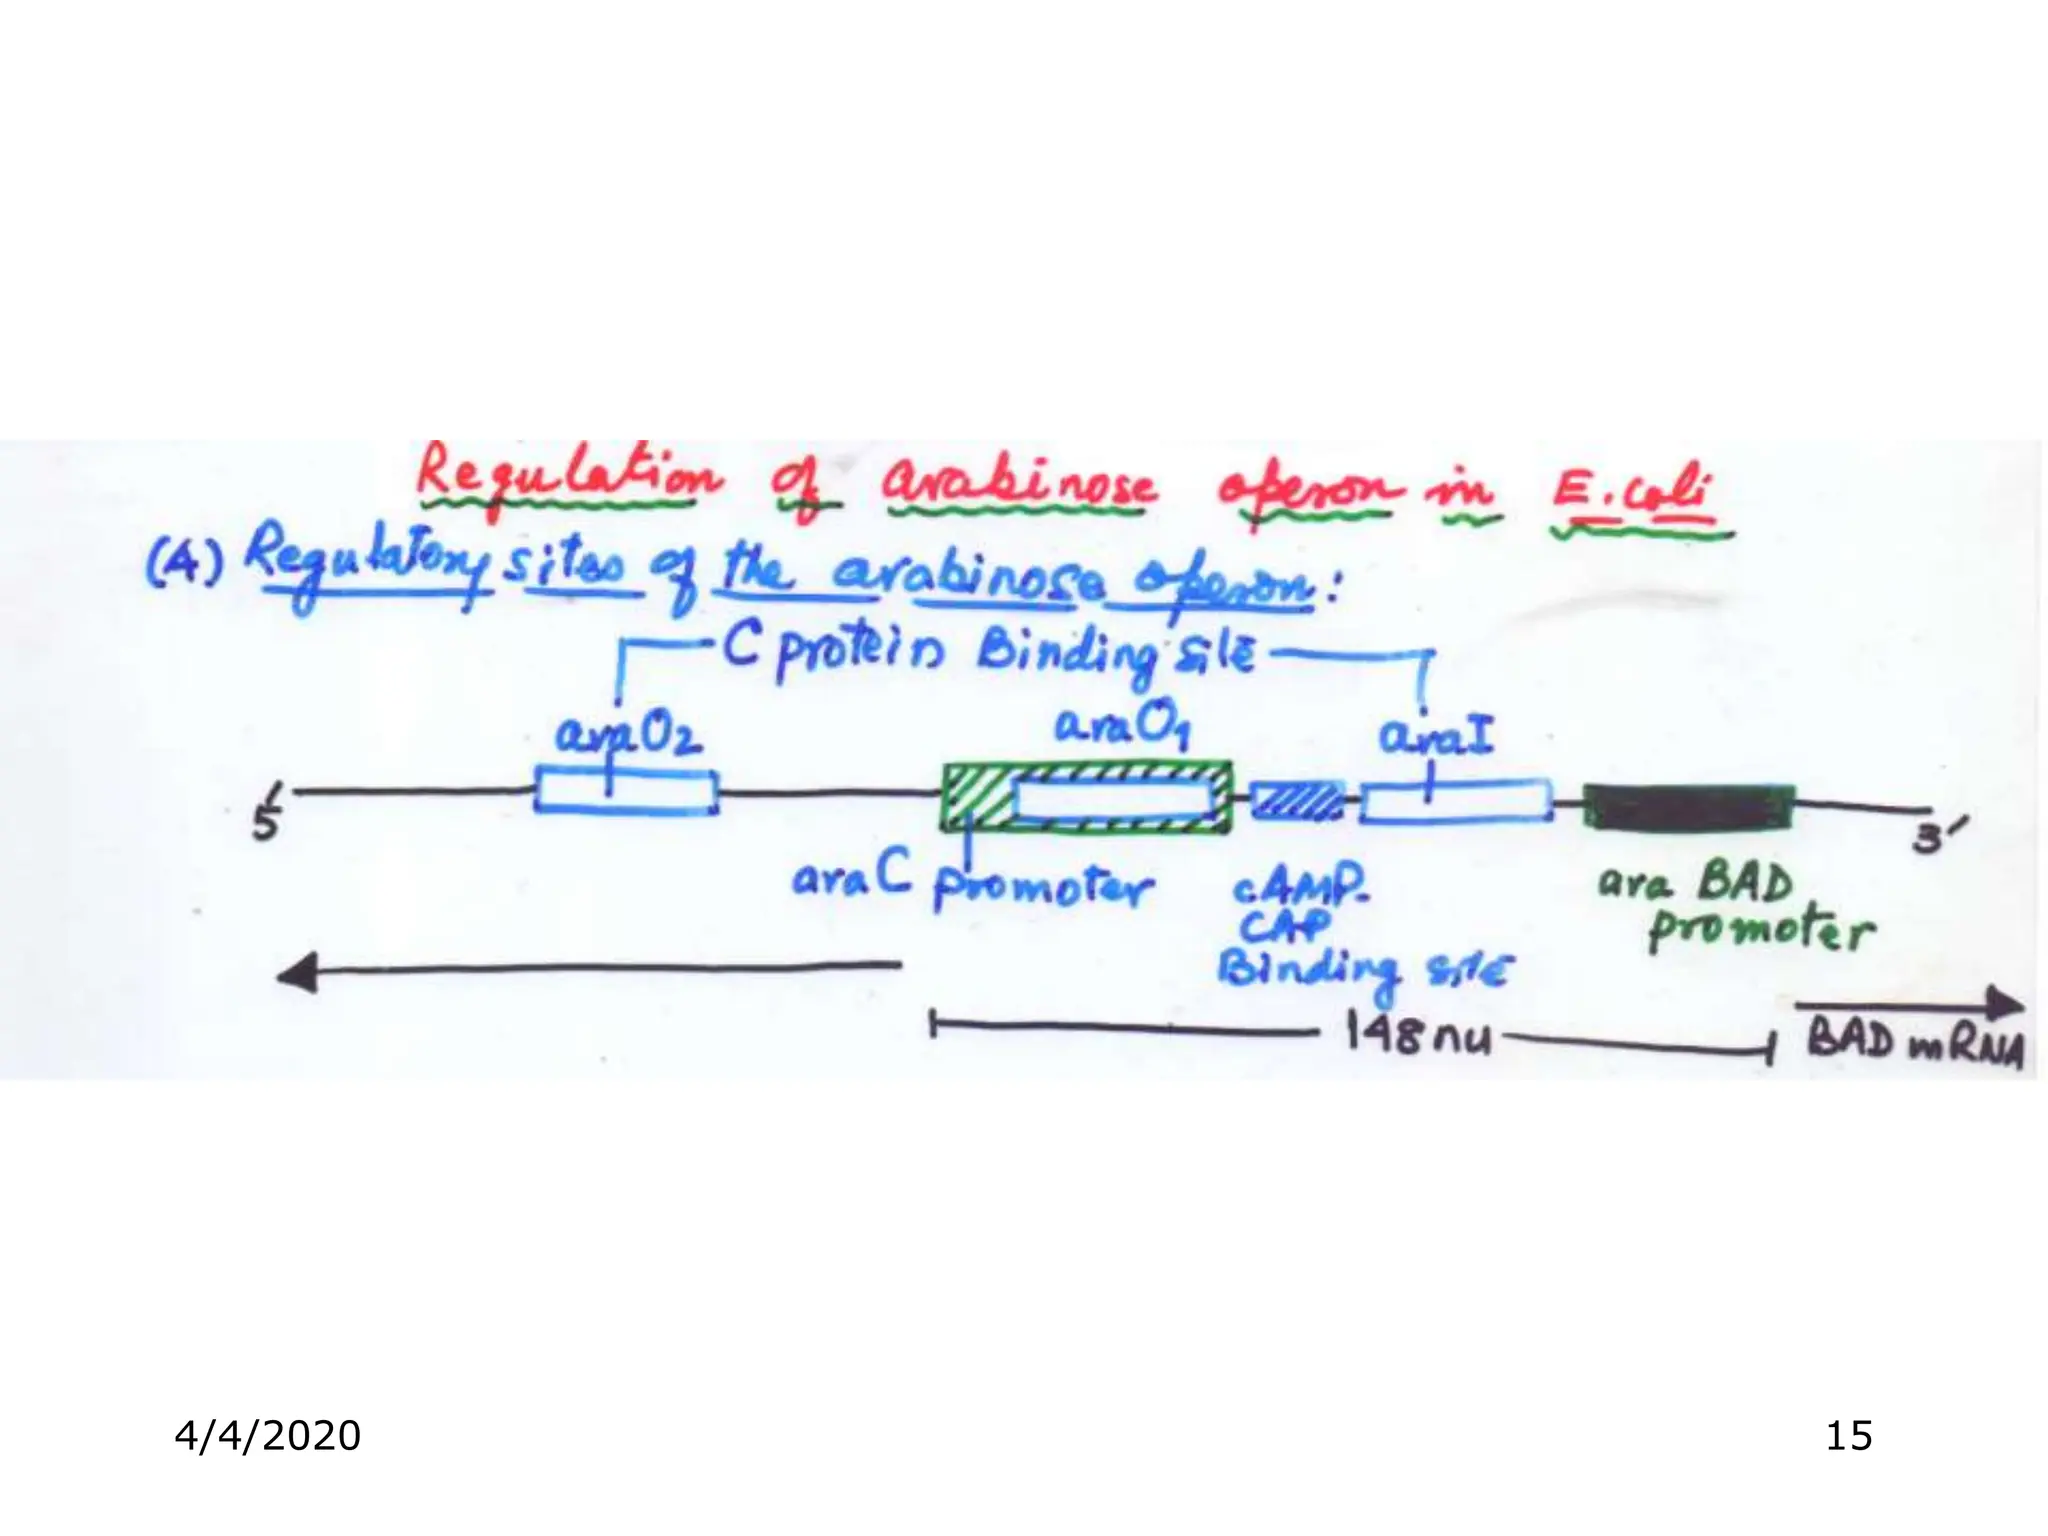 Regulation of arabinose operon in E.coli
(A) Regulatory sites of the arabinose operon:
C protein Binding site
araO2 araO1 araI
5' 3'
araC promoter
cAMP-
CAP
Binding site
ara BAD
promoter
148nu
BAD mRNA
4/4/2020 15